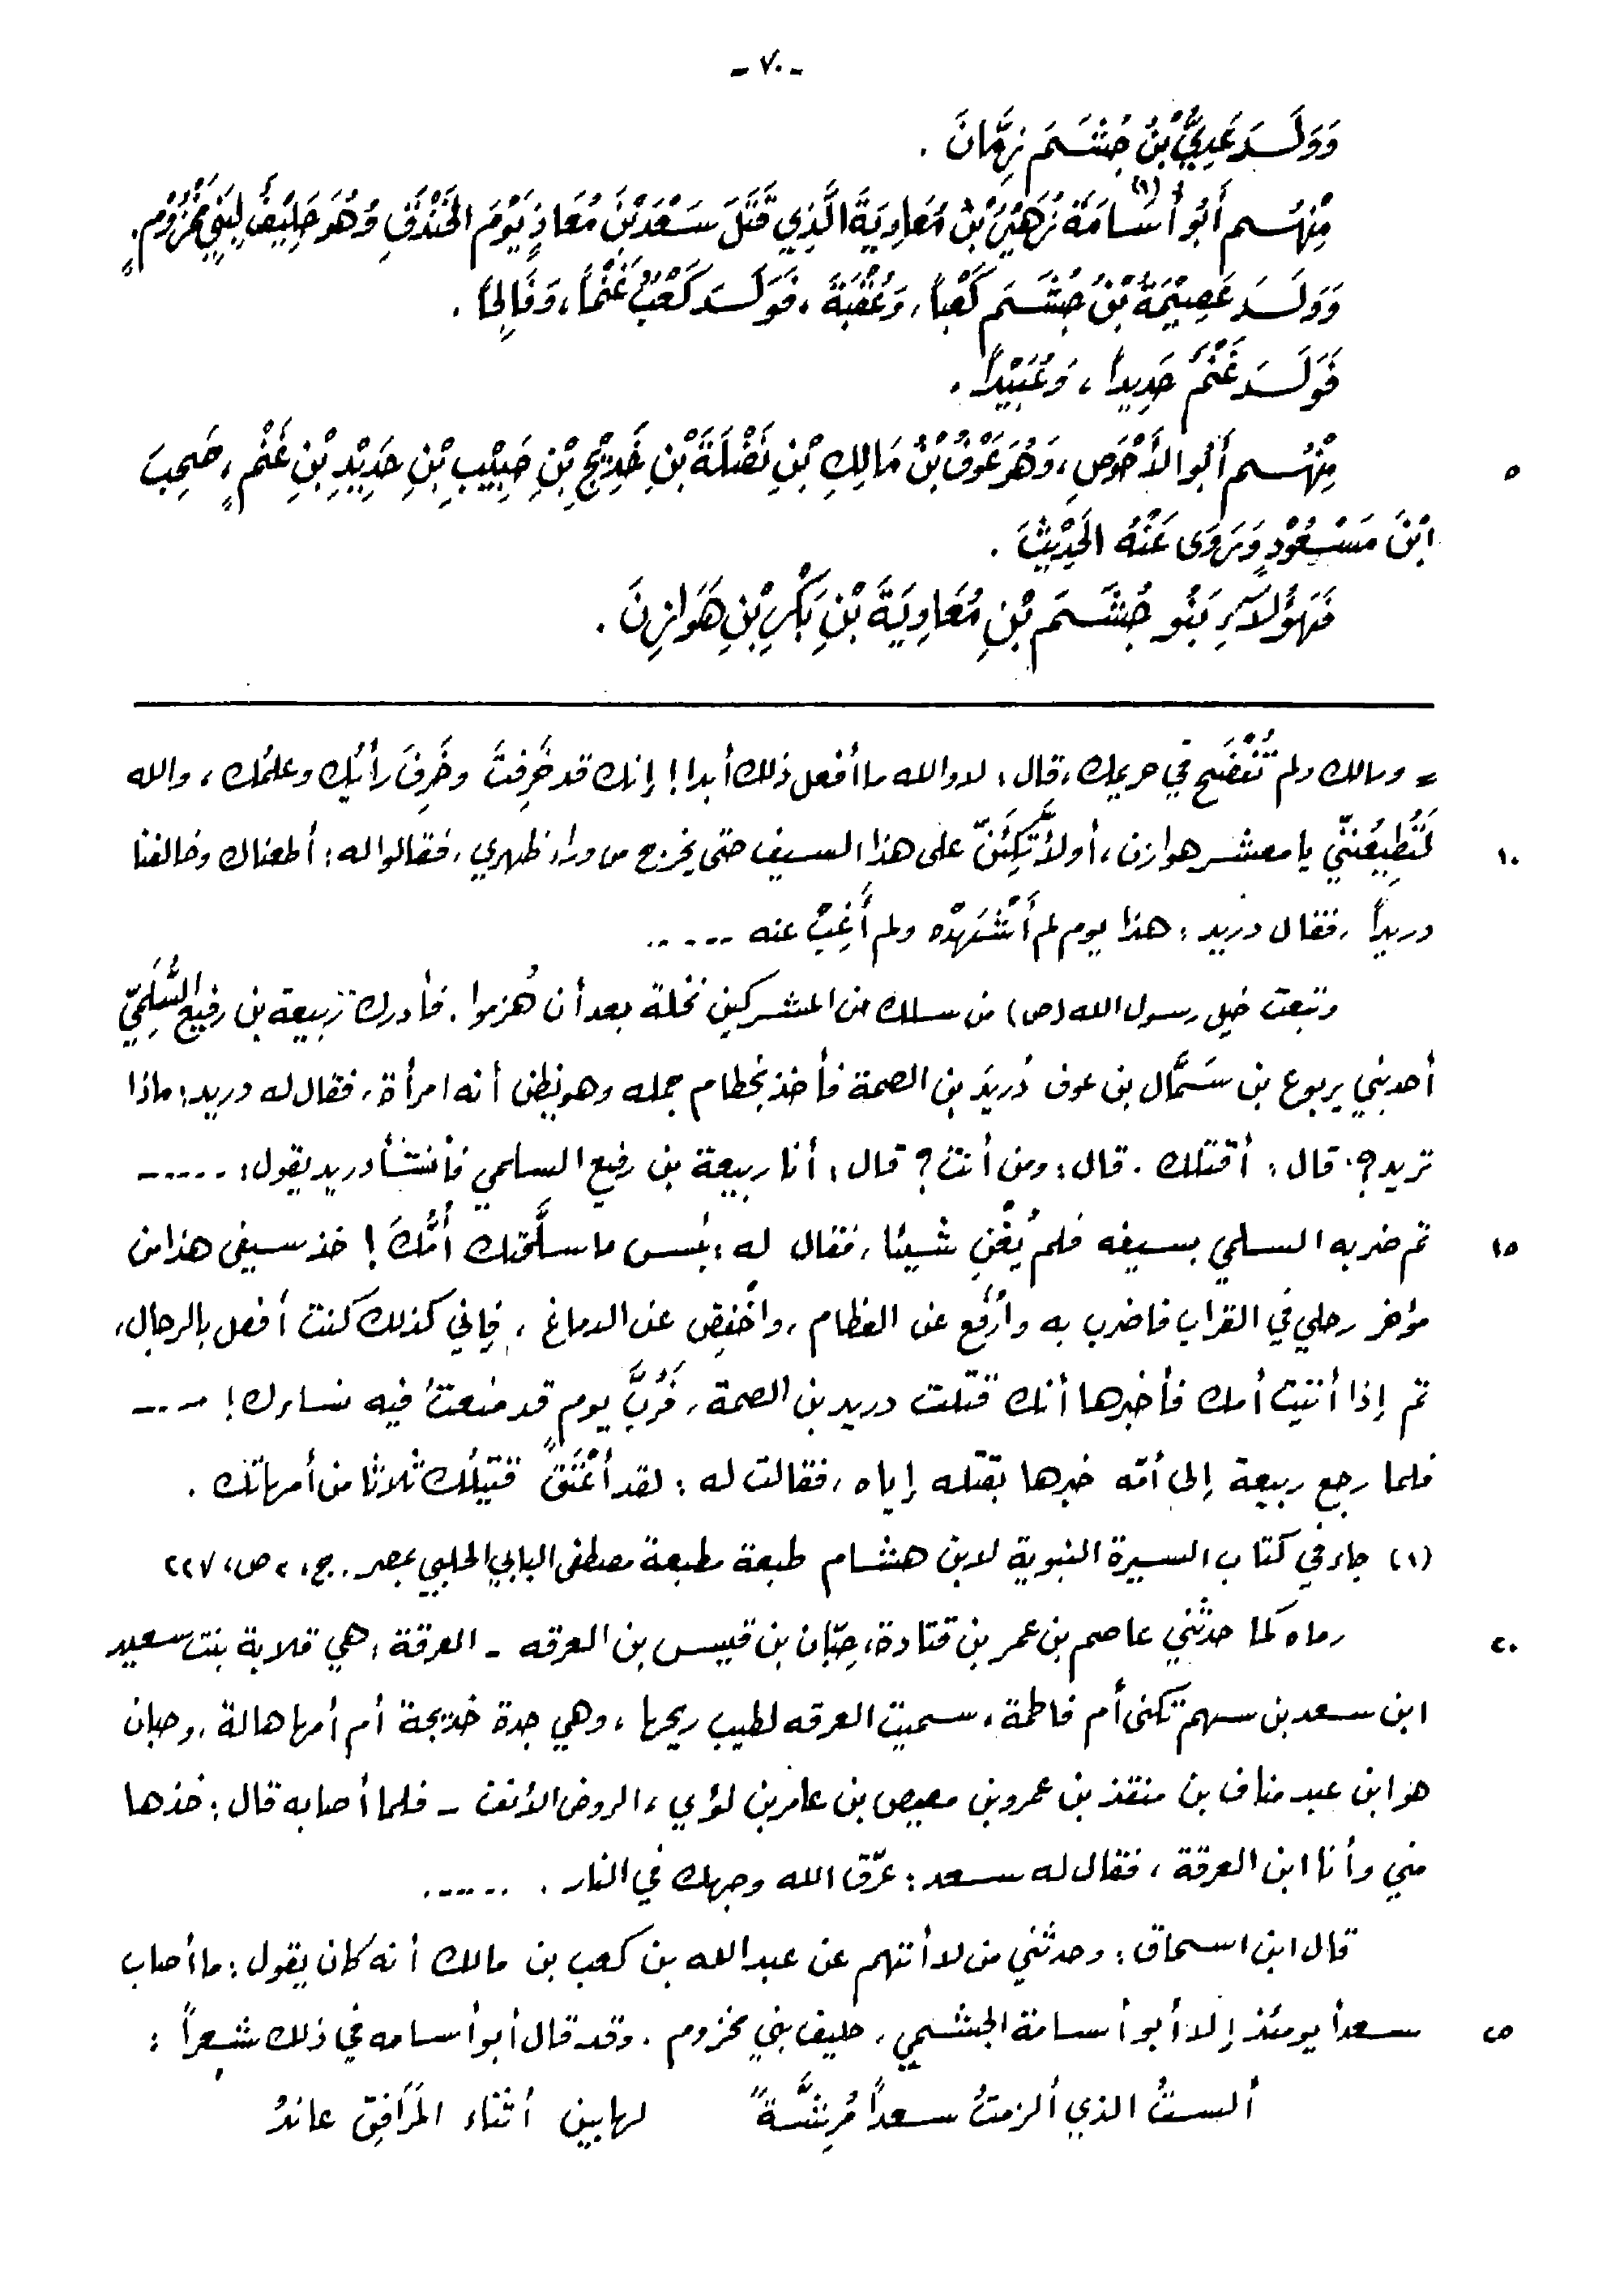 - ٧٠ -
وَوَلَـدَ عَدِيُّ بْنُ جُشَـمَ زِمَّانَ .
مِنْهُـم أَبُو أُسَامَةَ (١) زُهَيْرُ بْنُ مُعَاوِيَةَ الَّذِي قَتَلَ سَعْدَ بْنَ مُعَاذٍ يَوْمَ الخَنْدَقِ وَهُوَ حَلِيْفُ لِبَنِي مَخْزُوْمٍ .
وَوَلَـدَ عَصِيْمَةُ بْنُ جُشَـمَ كَعْباً، وَعُقْبَةَ ، فَوَلَـدَ كَعْبُ غَنْماً، وَفَالِحاً .
فَوَلَـدَ غَنْمُ حَدِيداً ، وَعُبَيْداً .
٥ مِنْهُـم أَبُو الأَحْوَصِ ، وَهُوَ عَوْفُ بْنُ مَالِكِ بْنِ نَضْلَةَ بْنِ خَدِيْجِ بْنِ حَبِيْبِ بْنِ حَدِيْدِ بْنِ غَنْمٍ ، صَحِبَ
ابْنَ مَسْعُوْدٍ وَرَوَى عَنْهُ الحَدِيْثَ .
فَهَؤُلاَءِ بَنُو جُشَـمَ بْنِ مُعَاوِيَةَ بْنِ بَكْرِ بْنِ هَوَازِنَ .
= ومالك ولم تُفْضَح في حريمك، قال : لا والله ما أفعل ذلك أبدا! إنك قد خَرِفتَ وخَرِفَ رأيك وعلمك ، والله
١٠ لَتُطِيعُنَّي يا معشر هوازن ، أولأتَّكِئَنّ على هذا السيف حتى يخرج من وراء ظهري ، فقالوا له : أطعناك وخالفنا
دريداً ، فقال دريد : هذا يوم لم أَشْهَدْه ولم أَغِبْ عنه .....
وتبعت خيل رسول الله (ص) من سلك من المشركين نخلة بعد أن هُزموا . فأدرك ربيعة بن رفيع السُّلَمِيّ
أحد بني يربوع بن سَمَّال بن عوف دُريدَ بن الصمة فأخذ بخطام جمله وهو يظن أنه امرأة ، فقال له دريد : ماذا
تريد ؟ قال : أقتلك . قال : ومن أنت ؟ قال : أنا ربيعة بن رفيع السلمي فأنشأ دريد يقول : .....
١٥ ثم ضربه السلمي بسيفه فلم يُغْنِ شيئا ، فقال له : بئس ما سلَّحتك أُمُّكَ ! خذ سيفي هذا من
مؤخر رحلي في القراب فاضرب به وارْفع عن العظام ، واخْفِض عن الدماغ ، فإني كذلك كنت أفعل بالرجال ،
ثم إذا أتيت أمك فأخبرها أنك قتلت دريد بن الصمة ، فَرُبَّ يوم قد منعتُ فيه نساءك ! .....
فلما رجع ربيعة إلى أمّه خبرها بقتله إياه ، فقالت له : لقد أَعْتَقَ قتيلُك ثلاثا من أمهاتك .
(١) جاء في كتاب السيرة النبوية لابن هشام طبعة مطبعة مصطفى البابي الحلبي بمصر . ج، ٢ ص، ٢٢٧
٢٠ رماه كما حدثني عاصم بن عمر بن قتادة، حِبّان بن قيس بن العرقه - العرقة ، هي قلابة بنت سعيد
ابن سعد بن سهم تكنى أم فاطمة ، سميت العرقه لطيب ريحها ، وهي جدة خديجة أم أمها هالة ، وحبان
هو ابن عبد مناف بن منقذ بن عمرو بن معيص بن عامر بن لؤي ، الروض الأنف - فلما أصابه قال : خذها
مني وأنا ابن العرقة ، فقال له سعد : عرّق الله وجهك في النار . ......
قال ابن اسحاق : وحدثني من لا أتهم عن عبد الله بن كعب بن مالك أنه كان يقول : ما أصاب
٢٥ سعداً يومئذ إلا أبو أسامة الجشمي ، حليف بني مخزوم . وقد قال أبو أسامه في ذلك شعراً :
ألستُ الذي ألزمتُ سعداً مُرِشَّةً لها بين أثناء المَرَافِقِ عاندُ